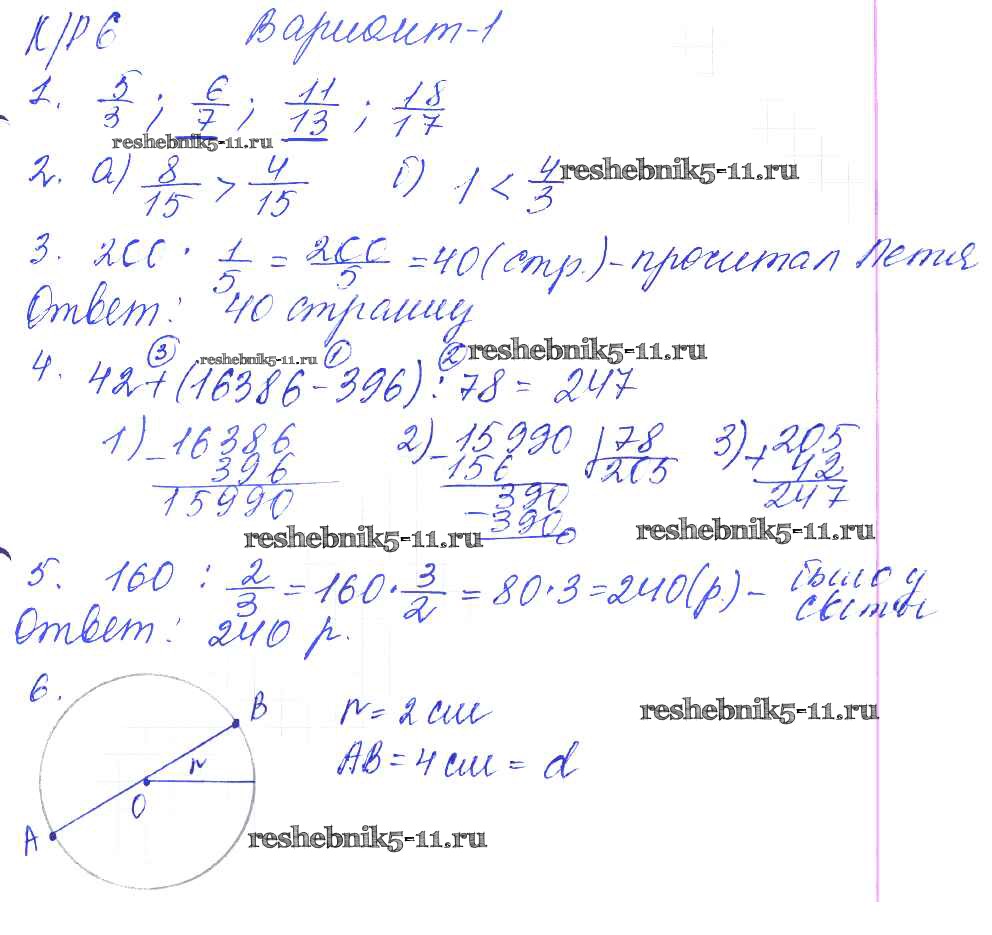 К/Р 6 Вариант-1
1. 5/3; 6/7; 11/13; 18/17
reshebnik5-11.ru
2. а) 8/15 > 4/15 б) 1 < 4/3
reshebnik5-11.ru
3. 200 · 1/5 = 200/5 = 40 (стр.) – прочитал Петя
Ответ: 40 страниц
③ reshebnik5-11.ru ① ② reshebnik5-11.ru
4. 42 + (16386 – 396) : 78 = 247
1) – 16386 2) – 15990 | 78 3) + 205
396 156 205 42
15990 390 247
– 390
0
reshebnik5-11.ru reshebnik5-11.ru
5. 160 : 2/3 = 160 · 3/2 = 80 · 3 = 240 (р.) – было у
Светы
Ответ: 240 р.
6.
B r = 2 см
reshebnik5-11.ru
r AB = 4 см = d
O
A
reshebnik5-11.ru